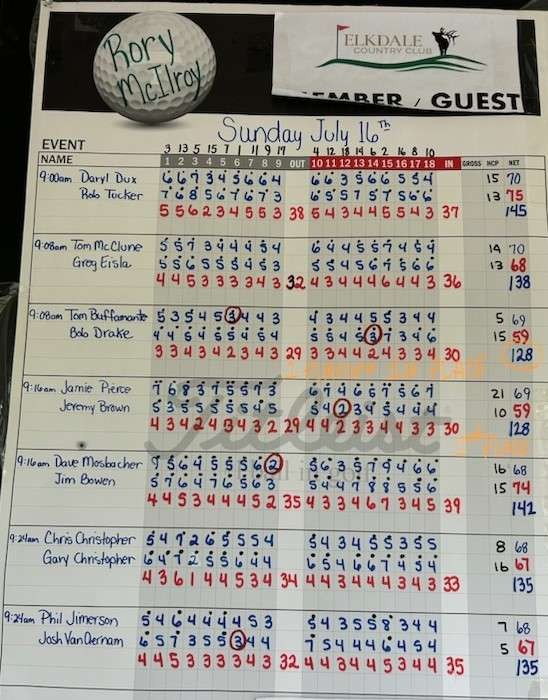 Rory
McIlroy
ELKDALE
COUNTRY CLUB
MEMBER / GUEST
Sunday July 16th
EVENT 3 13 15 5 7 1 11 9 17 4 12 18 14 6 2 16 8 10
NAME 1 2 3 4 5 6 7 8 9 OUT 10 11 12 13 14 15 16 17 18 IN GROSS HCP NET
9:00am Daryl Dux 6 6 7 3 4 5 6 6 4 6 6 3 5 6 6 5 5 4 15 70
Rob Tucker 7 6 8 5 6 7 6 7 3 6 5 5 7 5 7 5 6 6 13 75
5 5 6 2 3 4 5 5 3 38 5 4 3 4 4 5 5 4 3 37 145
9:08am Tom McClune 5 5 7 3 4 4 4 5 4 6 4 4 5 5 7 4 5 4 14 70
Greg Eisla 5 5 6 5 5 5 4 5 3 5 5 4 5 6 7 5 6 6 13 68
4 4 5 3 3 3 3 4 3 32 4 3 4 4 4 6 4 4 3 36 138
9:08am Tom Buffamante 5 3 5 4 5 3 4 4 3 4 3 4 4 5 5 4 4 4 5 69
Bob Drake 4 4 5 4 5 4 5 5 4 5 5 4 5 3 7 3 4 6 15 59
3 3 4 3 4 2 3 4 3 29 3 3 4 4 2 4 3 3 4 30 128
9:16am Jamie Pierce 7 6 8 3 7 5 5 7 3 6 7 4 6 6 7 5 6 7 21 69
Jeremy Brown 5 3 5 5 5 5 5 4 5 5 4 2 3 4 5 4 4 4 10 59
4 3 4 2 4 3 4 3 2 29 4 4 2 3 3 4 4 3 3 30 128
9:16am Dave Mosbacher 9 5 6 4 5 5 5 6 2 5 6 3 5 7 9 4 6 6 16 68
Jim Bowen 5 7 6 4 7 6 5 6 3 5 4 4 7 8 8 5 5 6 15 74
4 4 5 3 4 4 4 5 2 35 3 3 3 4 6 7 3 4 5 39 142
9:24am Chris Christopher 5 4 7 2 6 5 5 5 4 5 4 3 4 5 5 3 5 5 8 68
Gary Christopher 6 4 7 2 5 5 6 4 4 6 5 4 6 6 7 4 5 4 16 67
4 3 6 1 4 4 5 3 4 34 4 4 3 4 4 5 3 4 3 33 135
9:24am Phil Jimerson 5 4 6 4 4 4 4 5 3 5 4 3 5 5 8 3 4 4 7 68
Josh VanAernam 6 5 7 3 5 5 3 4 4 7 5 4 4 4 6 4 5 4 5 67
4 4 5 3 3 3 3 4 3 32 4 4 3 4 4 5 3 4 4 35 135